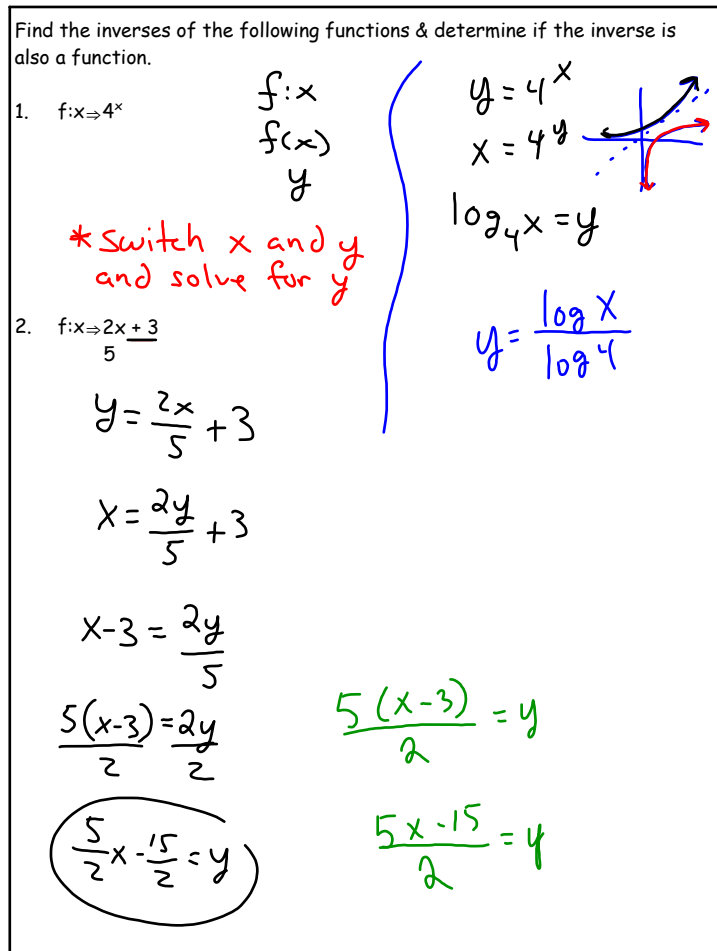 Find the inverses of the following functions & determine if the inverse is
also a function.
1. f:x⇒4ˣ
f:x
f(x)
y
* switch x and y
and solve for y
y = 4ˣ
x = 4ʸ
log₄x = y
y = log x / log 4
2. f:x⇒2x + 3
5
y = 2x/5 + 3
x = 2y/5 + 3
x-3 = 2y/5
5(x-3)/2 = 2y/2
5/2x - 15/2 = y
5(x-3)/2 = y
5x-15/2 = y